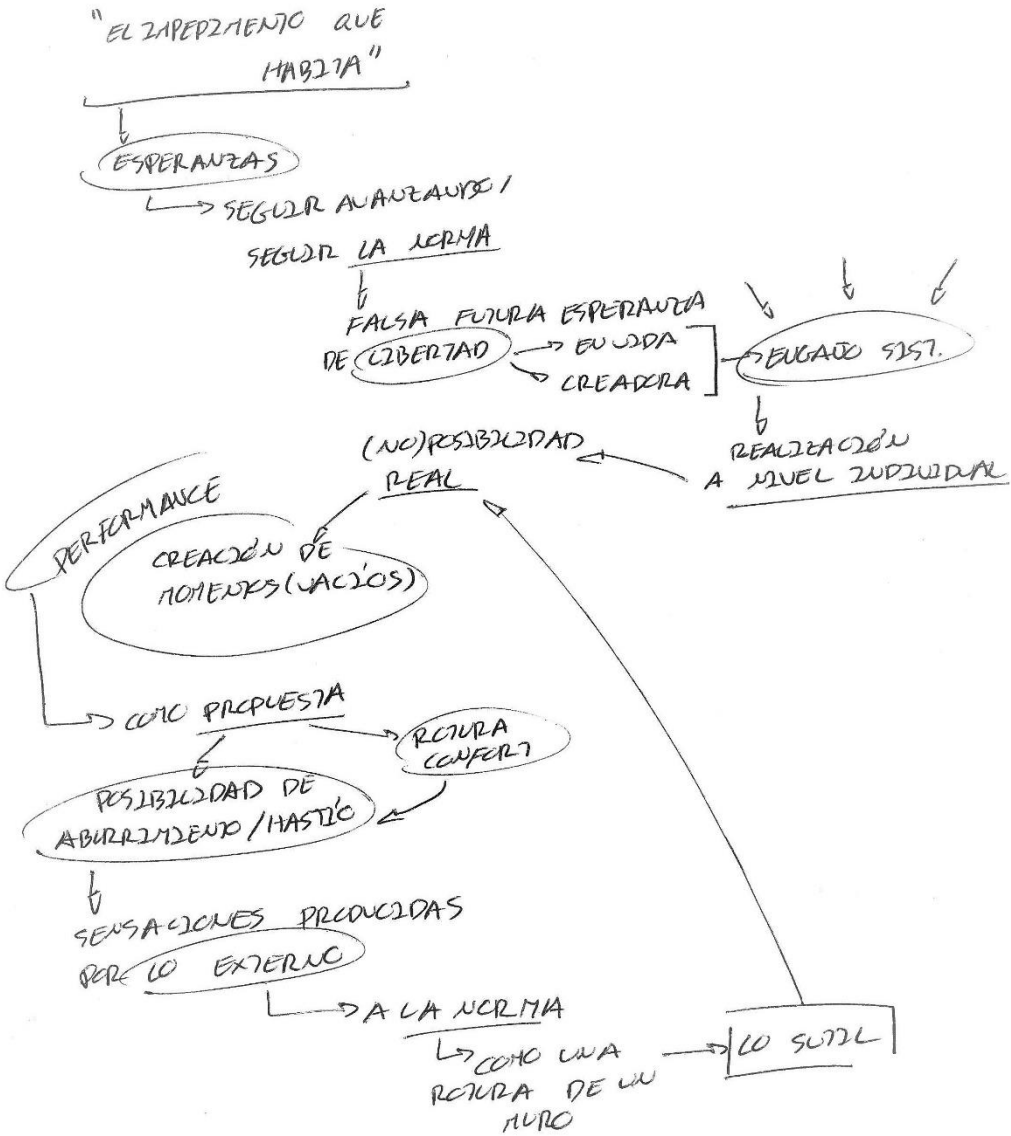 "EL IMPEDIMENTO QUE
HABITA"
ESPERANZAS
SEGUIR AVANZANDO/
SEGUIR LA NORMA
FALSA FUTURA ESPERANZA
DE LIBERTAD
EN VIDA
CREADORA
ENGAÑO SIST.
REALIZACIÓN
A NIVEL INDIVIDUAL
(NO)POSIBILIDAD
REAL
PERFORMANCE
CREACIÓN DE
MOMENTOS (VACÍOS)
COMO PROPUESTA
ROTURA
CONFORT
POSIBILIDAD DE
ABURRIMIENTO/HASTÍO
SENSACIONES PRODUCIDAS
POR LO EXTERNO
A LA NORMA
COMO UNA
ROTURA DE UN
MURO
LO SUTIL